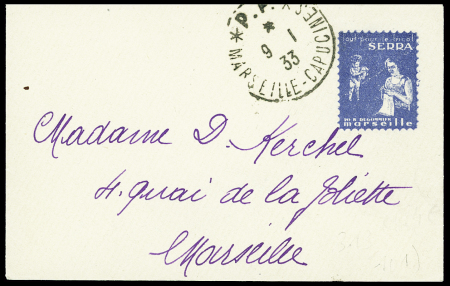 P.P.
MARSEILLE-CAPUCINES
9 - 1
33
tout pour le tricot
SERRA
marseille
Madame D. Kerchel
4. quai de la Joliette
Marseille